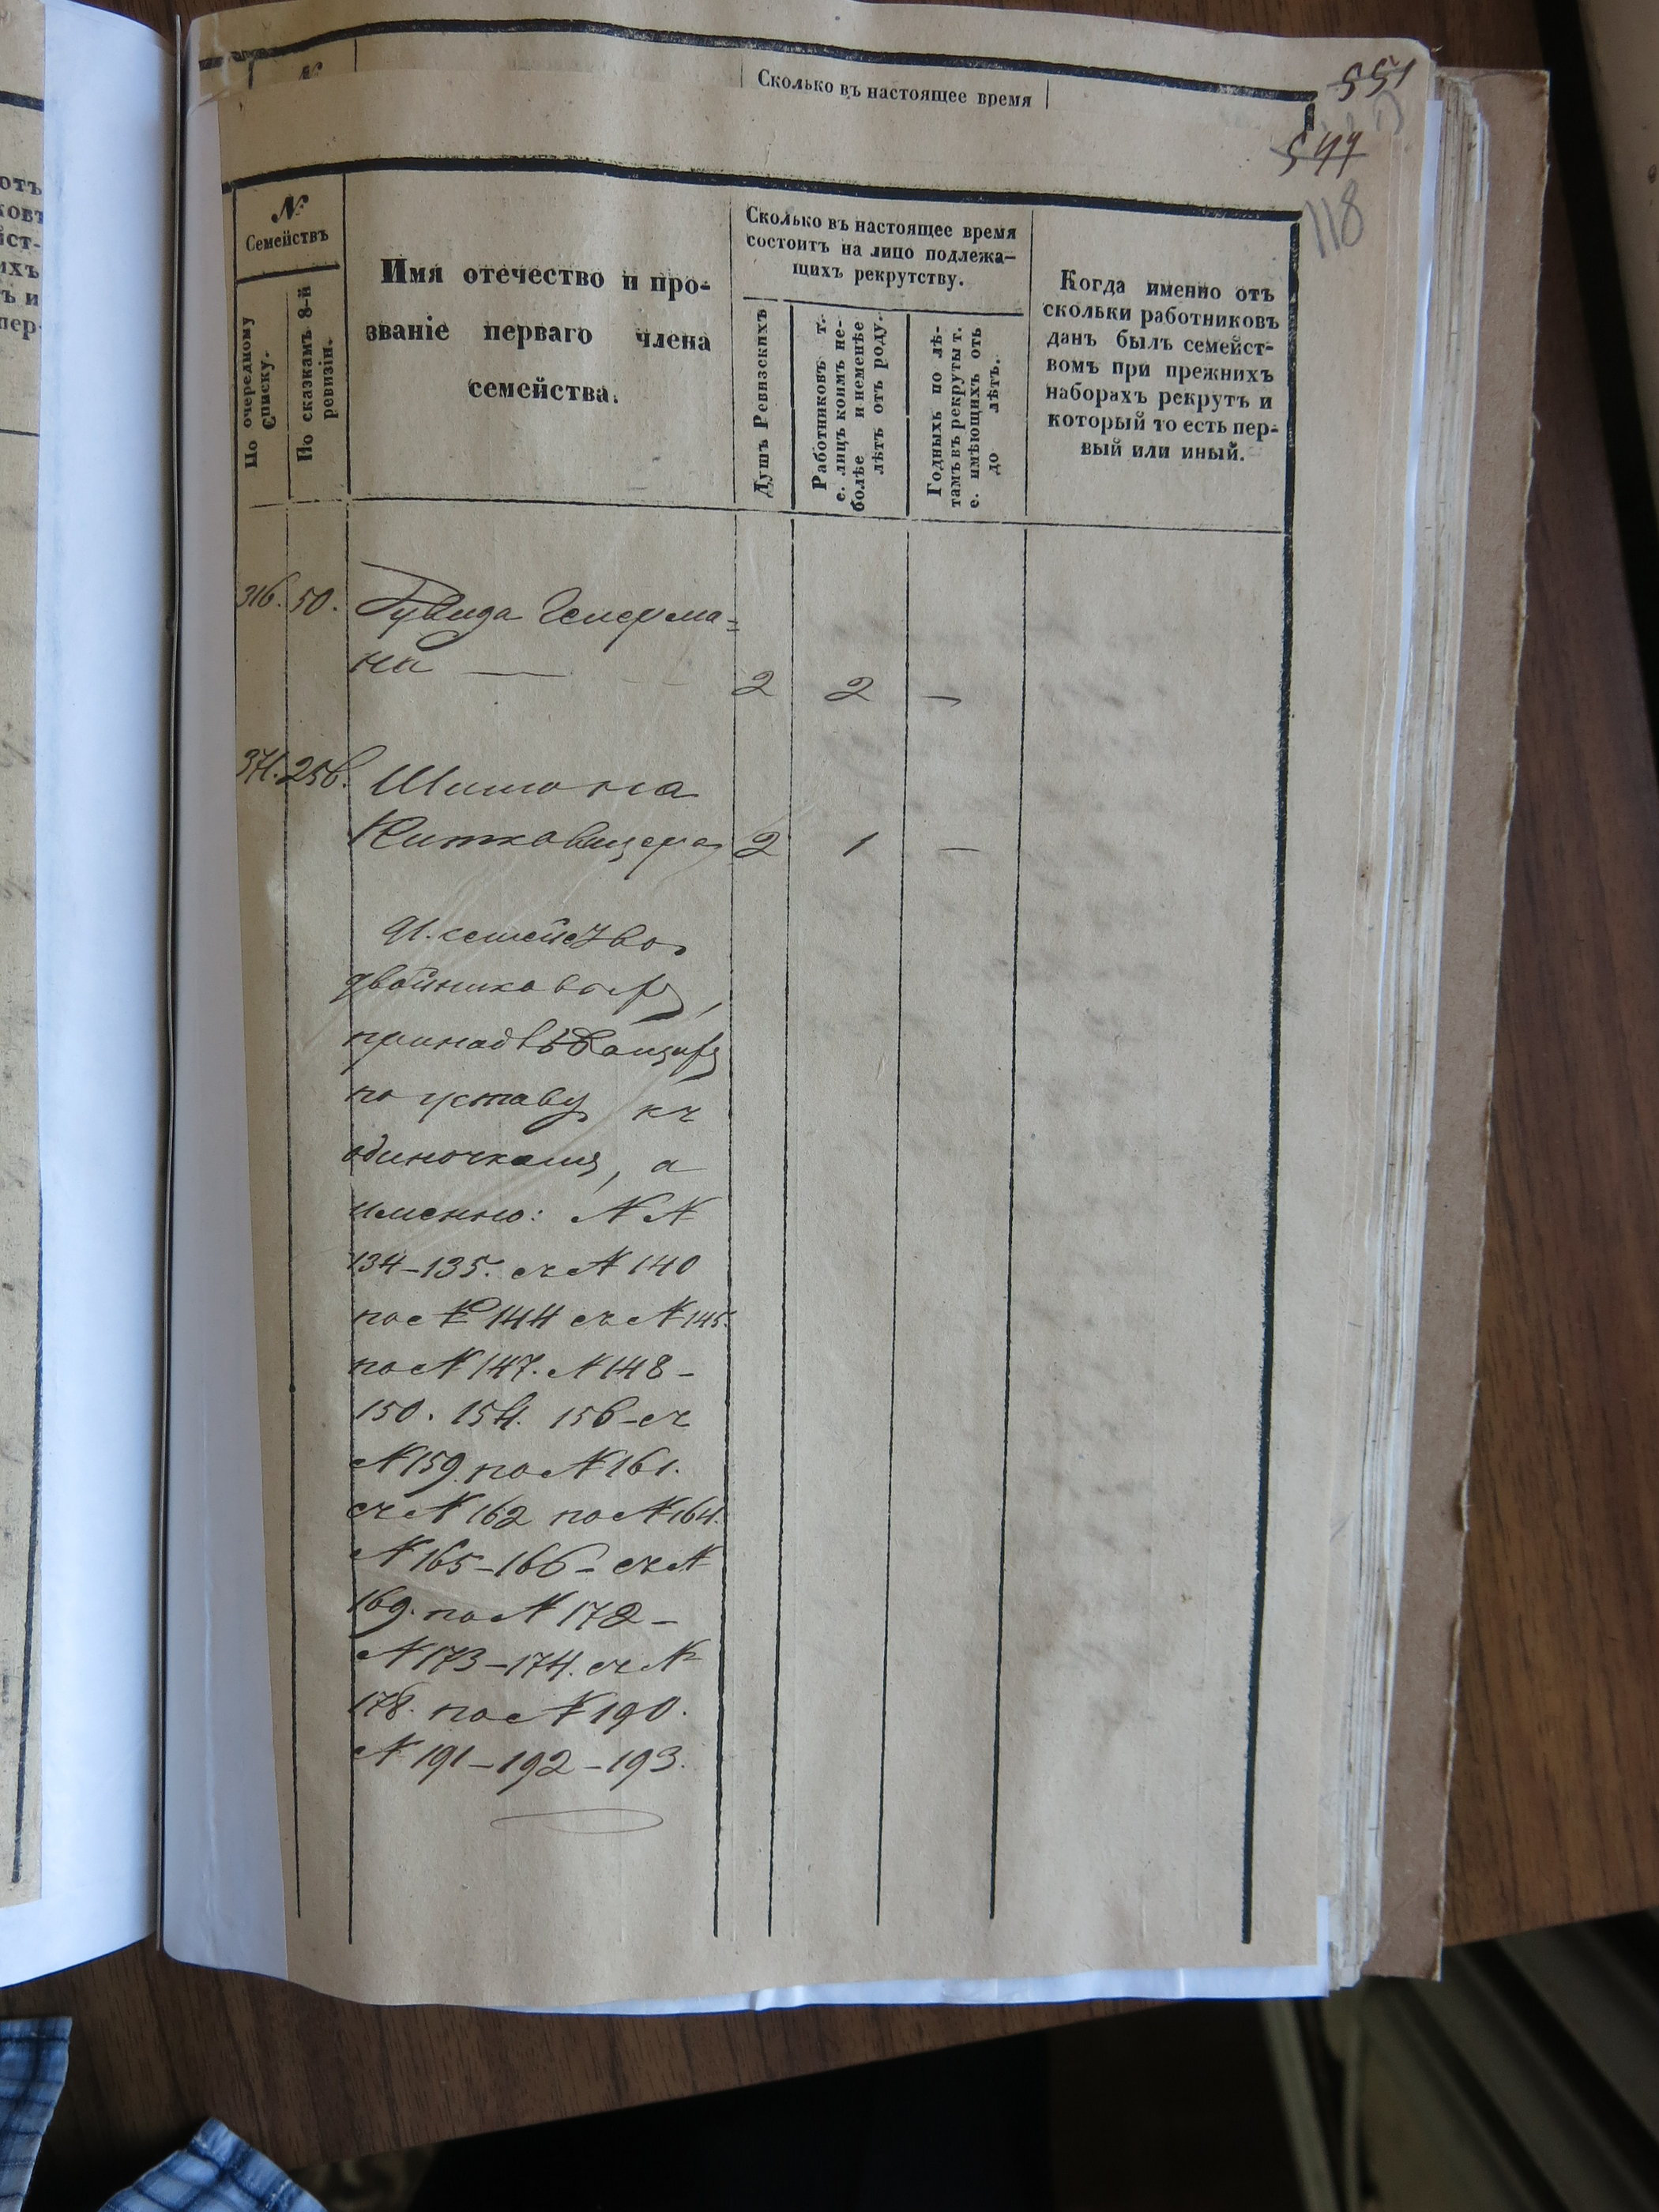 №
Сколько въ настоящее время
551
544
118
отъ
ковъ
йст-
ихъ
ъ и
пер-
№
Семействъ
По очередному
Списку.
По сказкамъ 8-й
ревизіи.
Имя отечество и про-
званіе перваго члена
семейства.
Сколько въ настоящее время
состоитъ на лицо подлежа-
щихъ рекрутству.
Душъ Ревизскихъ
Работниковъ т.
е. лицъ коимъ не-
болѣе и неменѣе
лѣтъ отъ роду.
Годныхъ по лѣ-
тамъ въ рекруты т.
е. имѣющихъ отъ
до лѣтъ.
Когда именно отъ
скольки работниковъ
данъ былъ семейст-
вомъ при прежнихъ
наборахъ рекрутъ и
который то есть пер-
вый или иный.
316. 50. Гувида
на — 2 2 —
371. 256. Шимона
2 1 —
41. семейство
двойниковыхъ,
по уставу къ
одиночкамъ, а
именно: № №
134-135. съ № 140
по № 144 съ № 145.
по № 147. № 148-
150. 154. 156-съ
№ 159. по № 161.
съ № 162 по № 164.
№ 165-166- съ №
169. по № 172-
№ 173-174. съ №
178. по № 190.
№ 191-192-193.